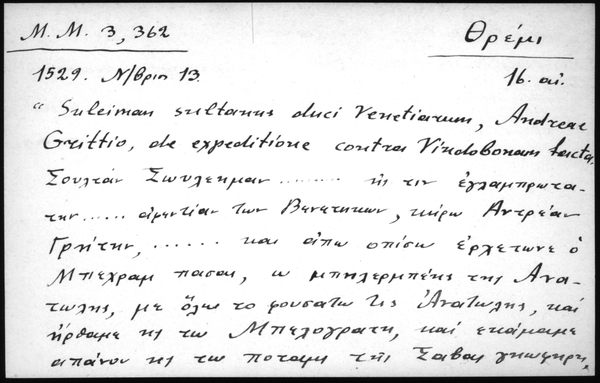 M. M. 3, 362
Θρέμι
1529. Ν/βριος 13.
16. αἰ.
“ Suleiman sultanus duci Venetiarum, Andreae
Grittio, de expeditione contra Vindobonam facta,
Σουλτάν Σωυλεημαν ........ ης τιν ἐγλαμπρωτα-
την ..... αὐφεντίαν των Βενετηκων, κύρω Αντρέαν
Γρήτην, ...... και απω οπίσω ἐρχετωνε ὁ
Μπεχραμ πασας, ω μπηλερμπέης της Ανα-
τωλης, με ὅλω το φουσατω τις Ἀνατωλης, καί
ἠρθαμε ης τω Μπελογρατη, καί εκάμαμε
απάνου ης τω ποταμη τῆς Σαβας γηωφηρη,